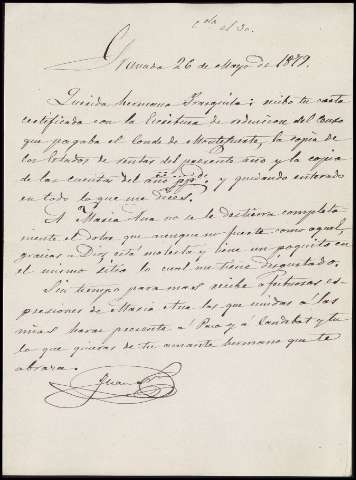 el 30.
Granada 26 de Mayo de 1879.
Querida hermana: recibo tu carta
certificada con la Escritura de reducion del Censo
que pagaba el Conde de Montefuerte, la copia de
los Estados de rentas del presente año y la copia
de las cuentas del año pp.do; y quedando enterado
en todo lo que me dices.
A Maria Ana no se le destierra completa
mente el dolor que aunque no fuerte como aquel,
gracias a Dios, está molesta y tiene un poquito en
el mismo sitio lo cual me tiene disgustado.
Sin tiempo para mas recibe afectuosas es
presiones de Maria Ana las que unidas á las
mias haras presente á Paco y á Candida y tu
lo que quieras de tu amante hermano que te
abraza.
Juan